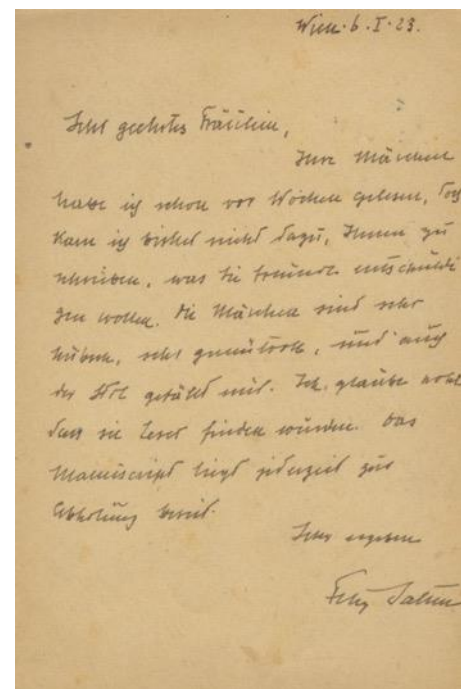 Wien. 6. I. 23.
Sehr geehrtes Fräulein,
Ihre Märchen
habe ich schon vor Wochen gelesen, doch
kam ich bisher nicht dazu, Ihnen zu
schreiben, was Sie freundl. entschuldi
gen wollen. Die Märchen sind sehr
hübsch, sehr gemütvoll, und auch
der Stil gefällt mir. Ich glaube wohl
dass sie Leser finden würden. Das
Manuscript liegt jederzeit zur
Abholung bereit.
Ihr ergeben
Felix Salten